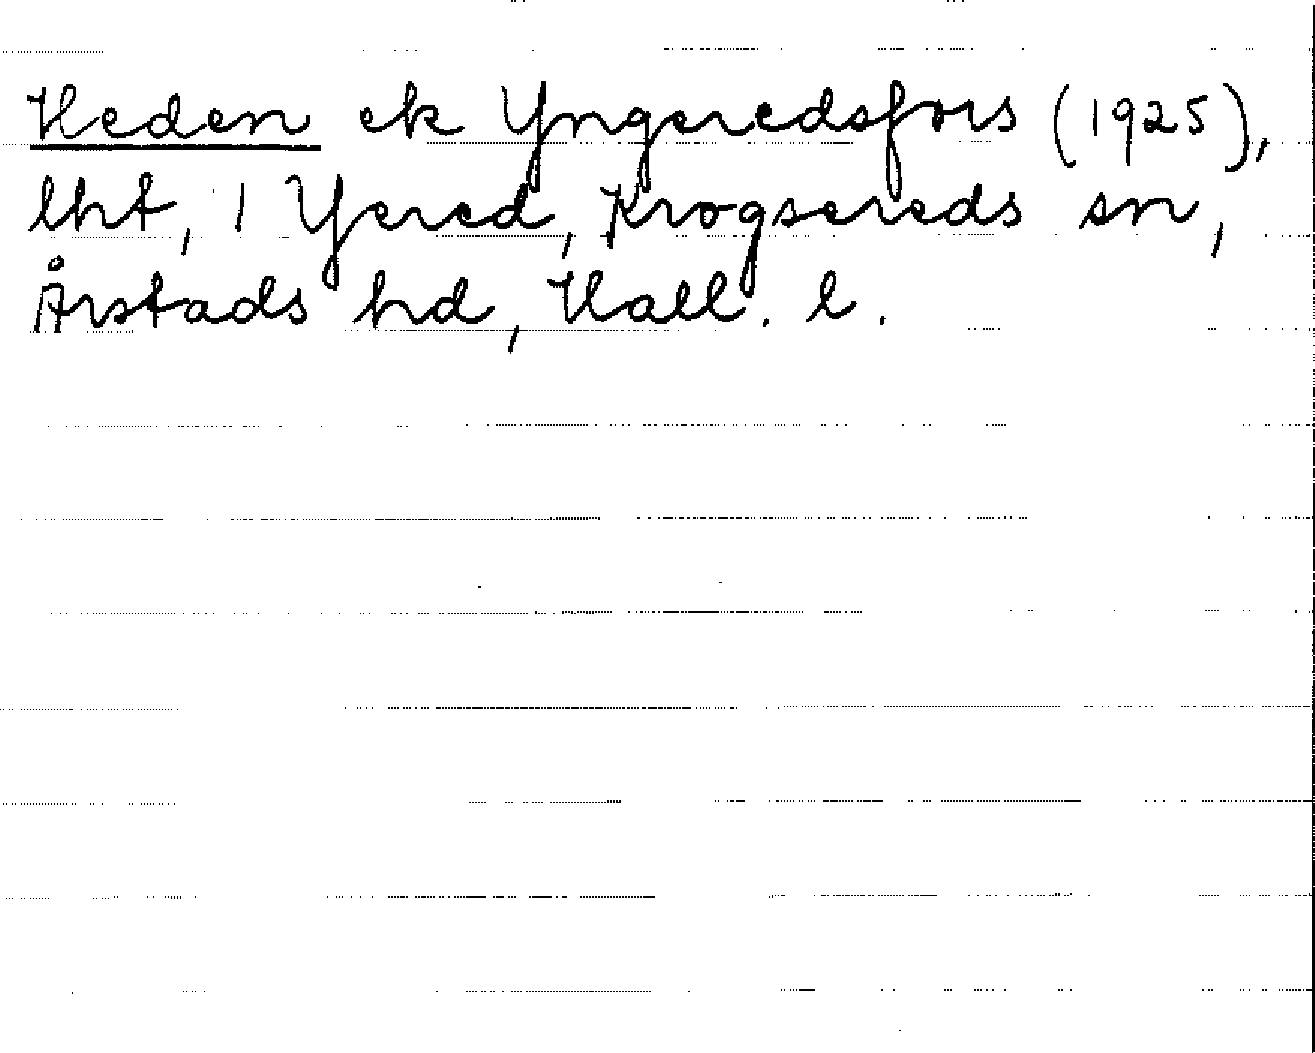 Heden ek Yngeredsfors (1925),
lht, 1 Yered, Krogsereds sn,
Årstads hd, Hall. l.